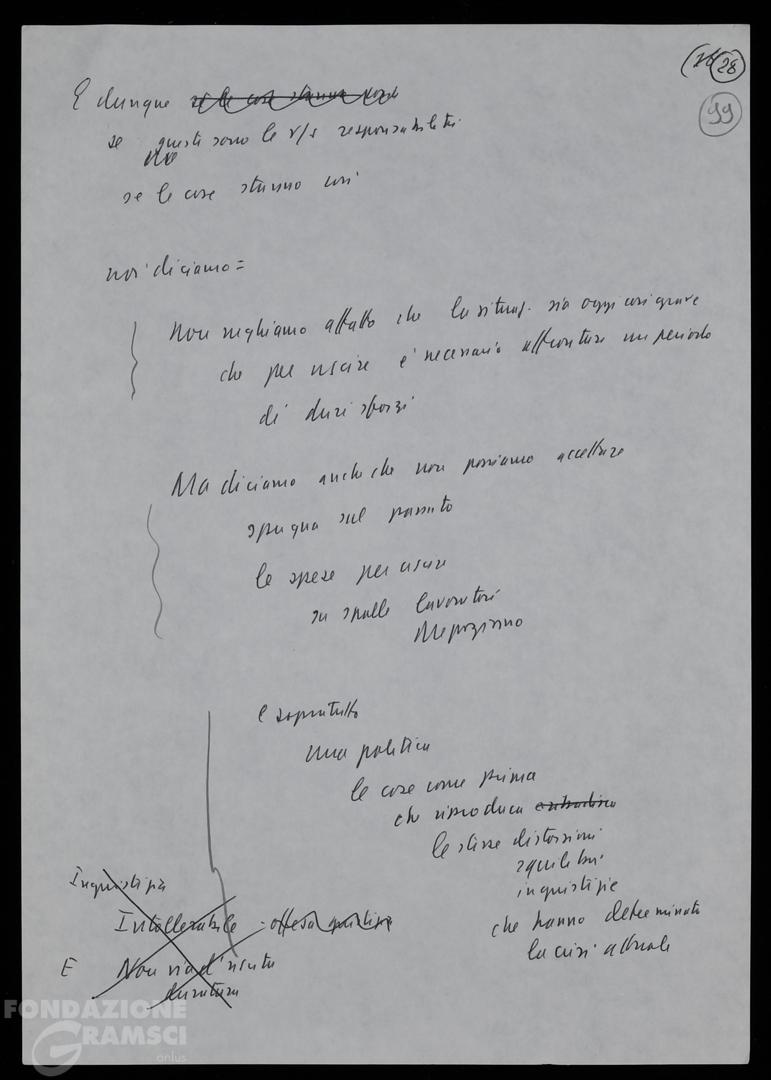 (28
99
E dunque se le cose stanno così
se questi sono le v/s responsabilità
se le cose stanno così
noi diciamo =
Non neghiamo affatto che la situaz. sia oggi così grave
che per uscire è necessario affrontare un periodo
di duri sforzi
Ma diciamo anche che non possiamo accettare
spugna sul passato
le spese per uscire
su spalle lavoratori
Mezzogiorno
e sopratutto
una politica
le cose come prima
che riproduca
le stesse distorsioni
squilibri
ingiustizie
che hanno determinato
la crisi attuale
Ingiustizia
Intollerabile = offesa giustizia
E Non via d'uscita
duratura
FONDAZIONE
GRAMSCI
onlus